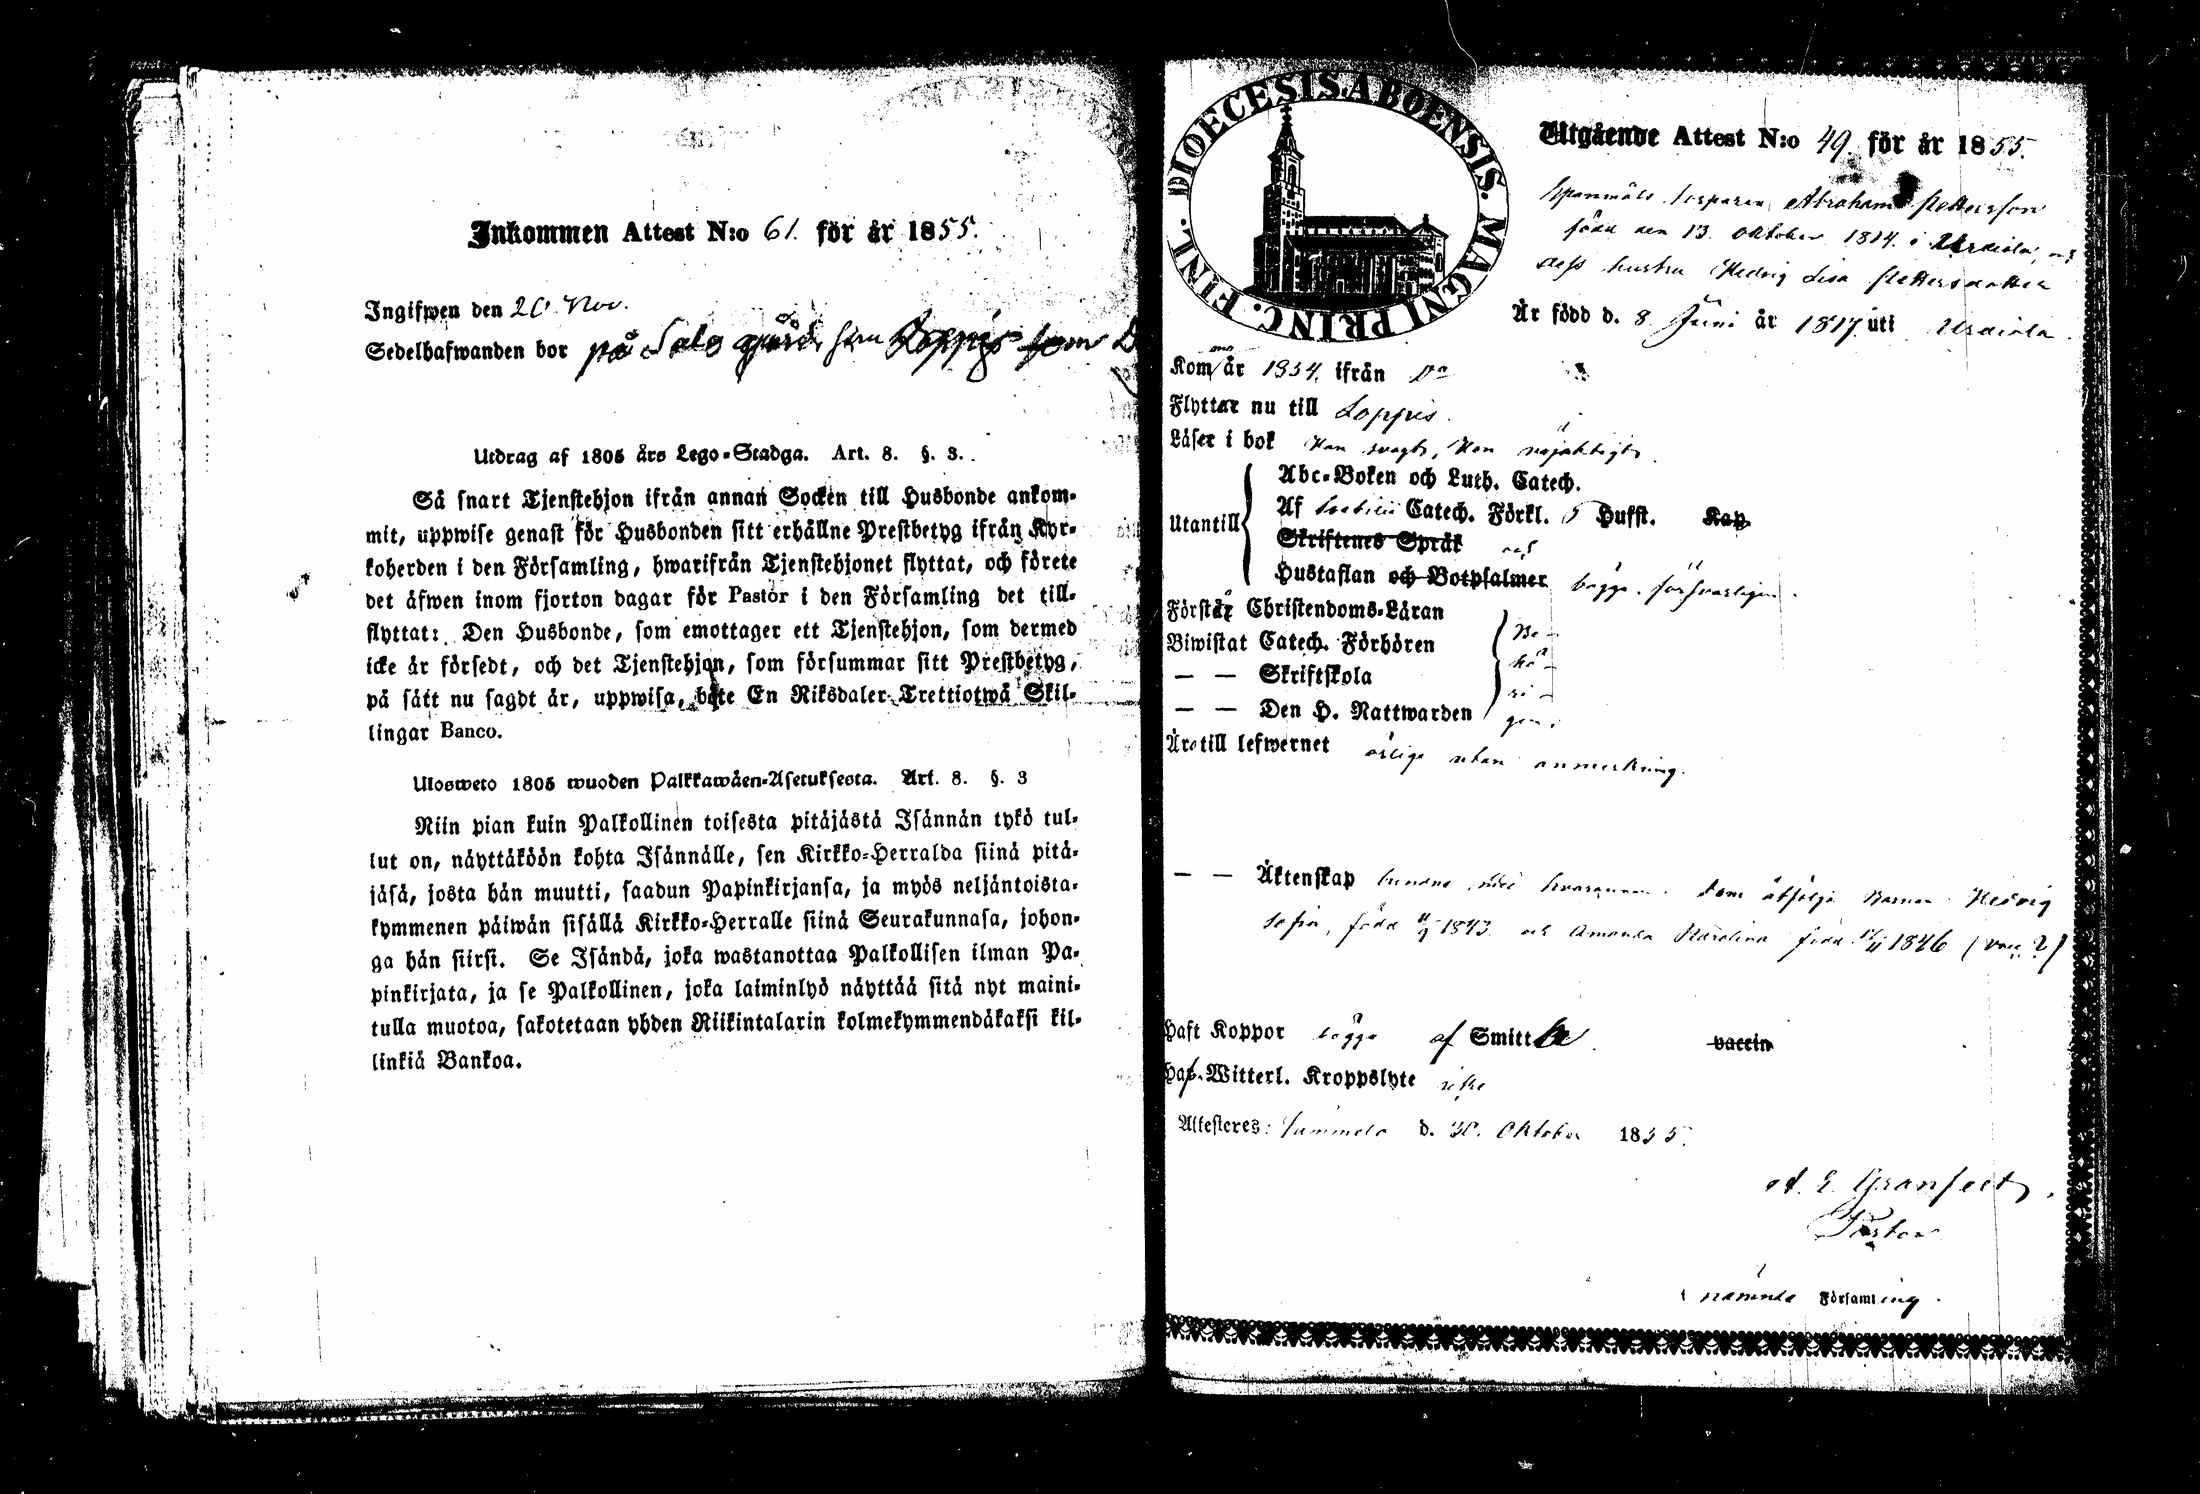 Inkommen Attest N:o 61. för år 1855.
Ingifwen den 20 Nov.
Sedelhafwanden bor på Salo gård
Utdrag af 1805 års Lego-Stadga. Art. 8. §. 3.
Så snart Tjenstehjon ifrån annan Socken till Husbonde ankom-
mit, uppwise genast för Husbonden sitt erhållne Prestbetyg ifrån Kyr-
koherden i den Församling, hwarifrån Tjenstehjonet flyttat, och förete
det äfwen inom fjorton dagar för Pastor i den Församling det till-
flyttat: Den Husbonde, som emottager ett Tjenstehjon, som dermed
icke är försedt, och det Tjenstehjon, som försummar sitt Prestbetyg,
på sätt nu sagdt är, uppwisa, böte En Riksdaler Trettiotwå Skil-
lingar Banco.
Ulosweto 1805 wuoden Palkkawäen-Asetuksesta. Art. 8. §. 3
Niin pian kuin Palkollinen toisesta pitäjästä Isännän tykö tul-
lut on, näyttäköön kohta Isännälle, sen Kirkko-Herralda siinä pitä-
jäsä, josta hän muutti, saadun Papinkirjansa, ja myös neljäntoista-
kymmenen päiwän sisällä Kirkko-Herralle siinä Seurakunnasa, johon-
ga hän siirsi. Se Isändä, joka wastanottaa Palkollisen ilman Pa-
pinkirjata, ja se Palkollinen, joka laiminlyö näyttää sitä nyt maini-
tulla muotoa, sakotetaan yhden Riikintalarin kolmekymmendäkaksi kil-
linkiä Bankoa.
DIOECESIS. ABOENSIS. MAGNI PRINC. FINL.
Utgående Attest N:o 49. för år 1855.
Spanmåls torparen Abraham Pettersson
född den 13. Oktober 1814. i Urdiala, och
dess hustru Hedvig Lisa Pettersdotter
Är född d. 8 Juni år 1817 uti Urdiala.
Kom år 1854. ifrån Do
Flyttar nu till Loppis.
Läser i bok Han svagt, Hon nöjaktigt.
Utantill
Abc-Boken och Luth. Catech.
Af Svebilii Catech. Förkl. 5 Hufst. Kap.
Skriftenes Språk och
Hustaflan och Botpsalmer begge försvarligen.
Förstår Christendoms-Läran
Biwistat Catech. Förhören Be-
— — Skriftskola hö-
— — Den H. Nattwarden ri-
gen.
Äro till lefwernet ärliga utan anmerkning.
— — Äktenskap bundne med hvarannan. Dem åtfölja Barnen Hedvig
Sofia, född 1843. och Amanda Karolina född 1846 (vacc. 2)
Haft Koppor begge af Smitta vaccin
Haf. Witterl. Kroppslyte icke
Attesteres: Tammela d. 30. Oktober 1855.
A. E. Granfelt,
Pastor
i nämnda Församling.